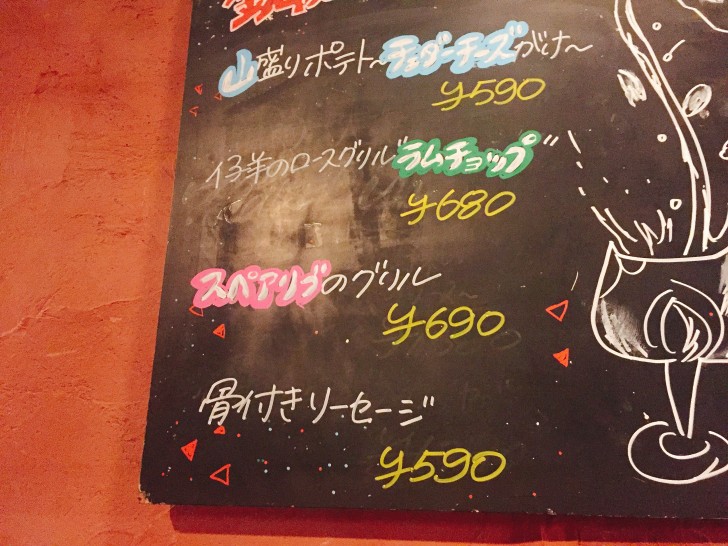 山盛りポテト～チェダーチーズがけ～
¥590
仔羊のロースグリル"ラムチョップ"
¥680
スペアリブのグリル
¥690
骨付きソーセージ
¥590